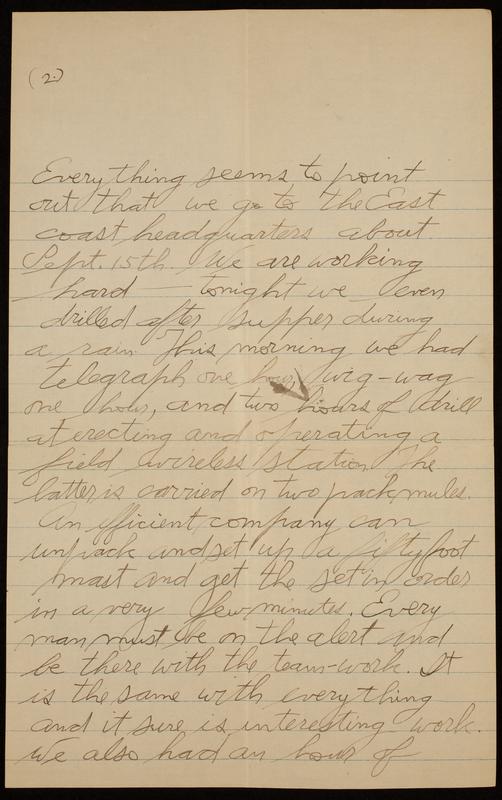 (2.)
Everything seems to point
out that we go to the East
coast headquarters about
Sept. 15th. We are working
hard — tonight we even
drilled after supper during
a rain. This morning we had
telegraph one hour, wig-wag
one hour, and two hours of drill
at erecting and operating a
field wireless station. The
latter is carried on two pack mules.
An efficient company can
unpack and set up a fifty foot
mast and get the set in order
in a very few minutes. Every
man must be on the alert and
be there with the team-work. It
is the same with everything
and it sure is interesting work.
We also had an hour of